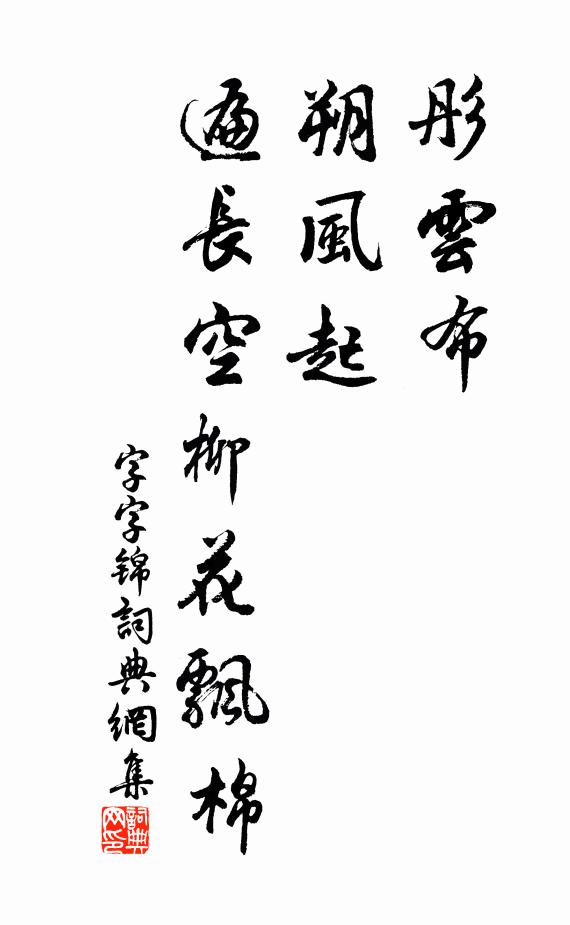 彤雲布
朔風起
遍長空柳花飄棉
字字锦詞典網集
詞典
网印